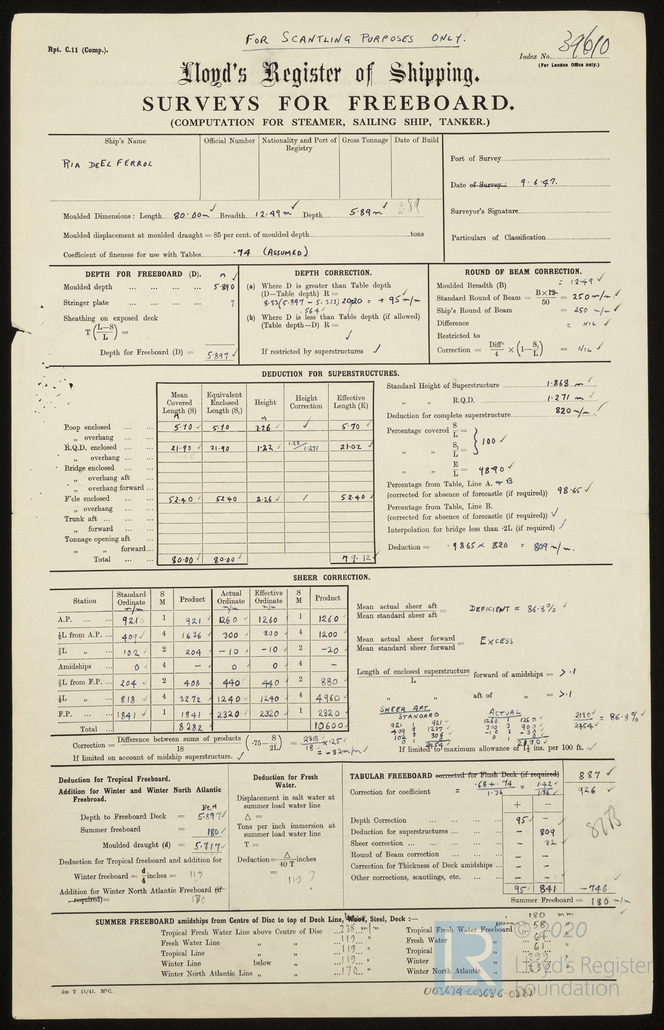 FOR SCANTLING PURPOSES ONLY.
Rpt. C.11 (Comp.).
Index No. 39610
(For London Office only.)
Lloyd's Register of Shipping.
SURVEYS FOR FREEBOARD.
(COMPUTATION FOR STEAMER, SAILING SHIP, TANKER.)
Ship's Name Official Number Nationality and Port of Registry Gross Tonnage Date of Build
RIA DEEL FERROL
Port of Survey
Date of Survey: 9.6.47.
Surveyor's Signature
Particulars of Classification
Moulded Dimensions: Length 80.00m Breadth 12.49m Depth 5.89m
Moulded displacement at moulded draught = 85 per cent. of moulded depth tons
Coefficient of fineness for use with Tables .74 (ASSUMED)
DEPTH FOR FREEBOARD (D).
Moulded depth 5.890
Stringer plate 7
Sheathing on exposed deck
T (L-S/L) =
Depth for Freeboard (D) = 5.897
DEPTH CORRECTION.
(a) Where D is greater than Table depth
(D—Table depth) R =
= + 95 m/m
(b) Where D is less than Table depth (if allowed)
(Table depth—D) R =
If restricted by superstructures
ROUND OF BEAM CORRECTION.
Moulded Breadth (B) = 12.49
Standard Round of Beam = B×12/50 = 250 m/m
Ship's Round of Beam = 250 m/m
Difference = NIL
Restricted to
Correction = Diff/4 × (1 - S₁/L) = NIL
DEDUCTION FOR SUPERSTRUCTURES.
Mean Covered Length (S) Equivalent Enclosed Length (S₁) Height Height Correction Effective Length (E)
Poop enclosed 5.70 5.70 2.26 / 5.70
" overhang
R.Q.D. enclosed 21.90 21.90 1.22 1.22/1.271 21.02
" overhang
Bridge enclosed
" overhang aft
" overhang forward
F'cle enclosed 52.40 52.40 2.26 / 52.40
" overhang
Trunk aft
" forward
Tonnage opening aft
" " forward
Total 80.00 80.00 79.12
Standard Height of Superstructure 1.868 m
" " R.Q.D. 1.271 m
Deduction for complete superstructure 820 m/m
Percentage covered S/L =
" " S₁/L = } 100
" " E/L = 98.90
Percentage from Table, Line A. + B
(corrected for absence of forecastle (if required)) 98.65
Percentage from Table, Line B.
(corrected for absence of forecastle (if required))
Interpolation for bridge less than .2L (if required)
Deduction = .9865 × 820 = 809 m/m.
SHEER CORRECTION.
Station Standard Ordinate S M Product Actual Ordinate Effective Ordinate S M Product
A.P. 921 1 921 1260 1260 1 1260
⅙L from A.P. 409 4 1636 300 300 4 1200
⅓L " 102 2 204 -10 -10 2 -20
Amidships 0 4 - 0 0 4 -
⅓L from F.P. 204 2 408 440 440 2 880
⅙L " 818 4 3272 1240 1240 4 4960
F.P. 1841 1 1841 2320 2320 1 2320
Total 8282 10600
Mean actual sheer aft / Mean standard sheer aft = DEFICIENT = 86.8%
Mean actual sheer forward / Mean standard sheer forward = EXCESS
Length of enclosed superstructure / L forward of amidships = > .1
" " aft of " = > .1
SHEER AFT
STANDARD ACTUAL
2130/2454 = 86.8%
Correction = Difference between sums of products / 18 (.75 - S/2L) = 2318/18 × .25 = -32 m/m
If limited on account of midship superstructure.
If limited to maximum allowance of 1½ ins. per 100 ft.
Deduction for Tropical Freeboard.
Addition for Winter and Winter North Atlantic Freeboard.
Depth to Freeboard Deck = 5.897
Summer freeboard = 180
Moulded draught (d) = 5.717
Deduction for Tropical freeboard and addition for
Winter freeboard = d/4 inches = 119
Addition for Winter North Atlantic Freeboard (if required) =
Deduction for Fresh Water.
Displacement in salt water at summer load water line
Δ =
Tons per inch immersion at summer load water line
T =
Deduction = Δ/40 T inches
= 119 ?
TABULAR FREEBOARD corrected for Flush Deck (if required) 887
Correction for coefficient .68+.74/1.36 = 1.42/1.36 926
+ -
Depth Correction 95 -
Deduction for superstructures - 809
Sheer correction - 32
Round of Beam correction - -
Correction for Thickness of Deck amidships - -
Other corrections, scantlings, etc. - -
95 841 -746
Summer Freeboard = 180 m/m
SUMMER FREEBOARD amidships from Centre of Disc to top of Deck Line, Wood, Steel, Deck :— 180 mm
Tropical Fresh Water Line above Centre of Disc 238 m/m
Fresh Water Line " " 119 "
Tropical Line " " 119 "
Winter Line below " 119 "
Winter North Atlantic Line " " 170 "
Tropical Fresh Water Freeboard
Fresh Water " 61
Tropical " 61
Winter "
Winter North Atlantic "
© 2020
LR
Lloyd's Register
Foundation
2m T 11/41.
003679-003686-0222